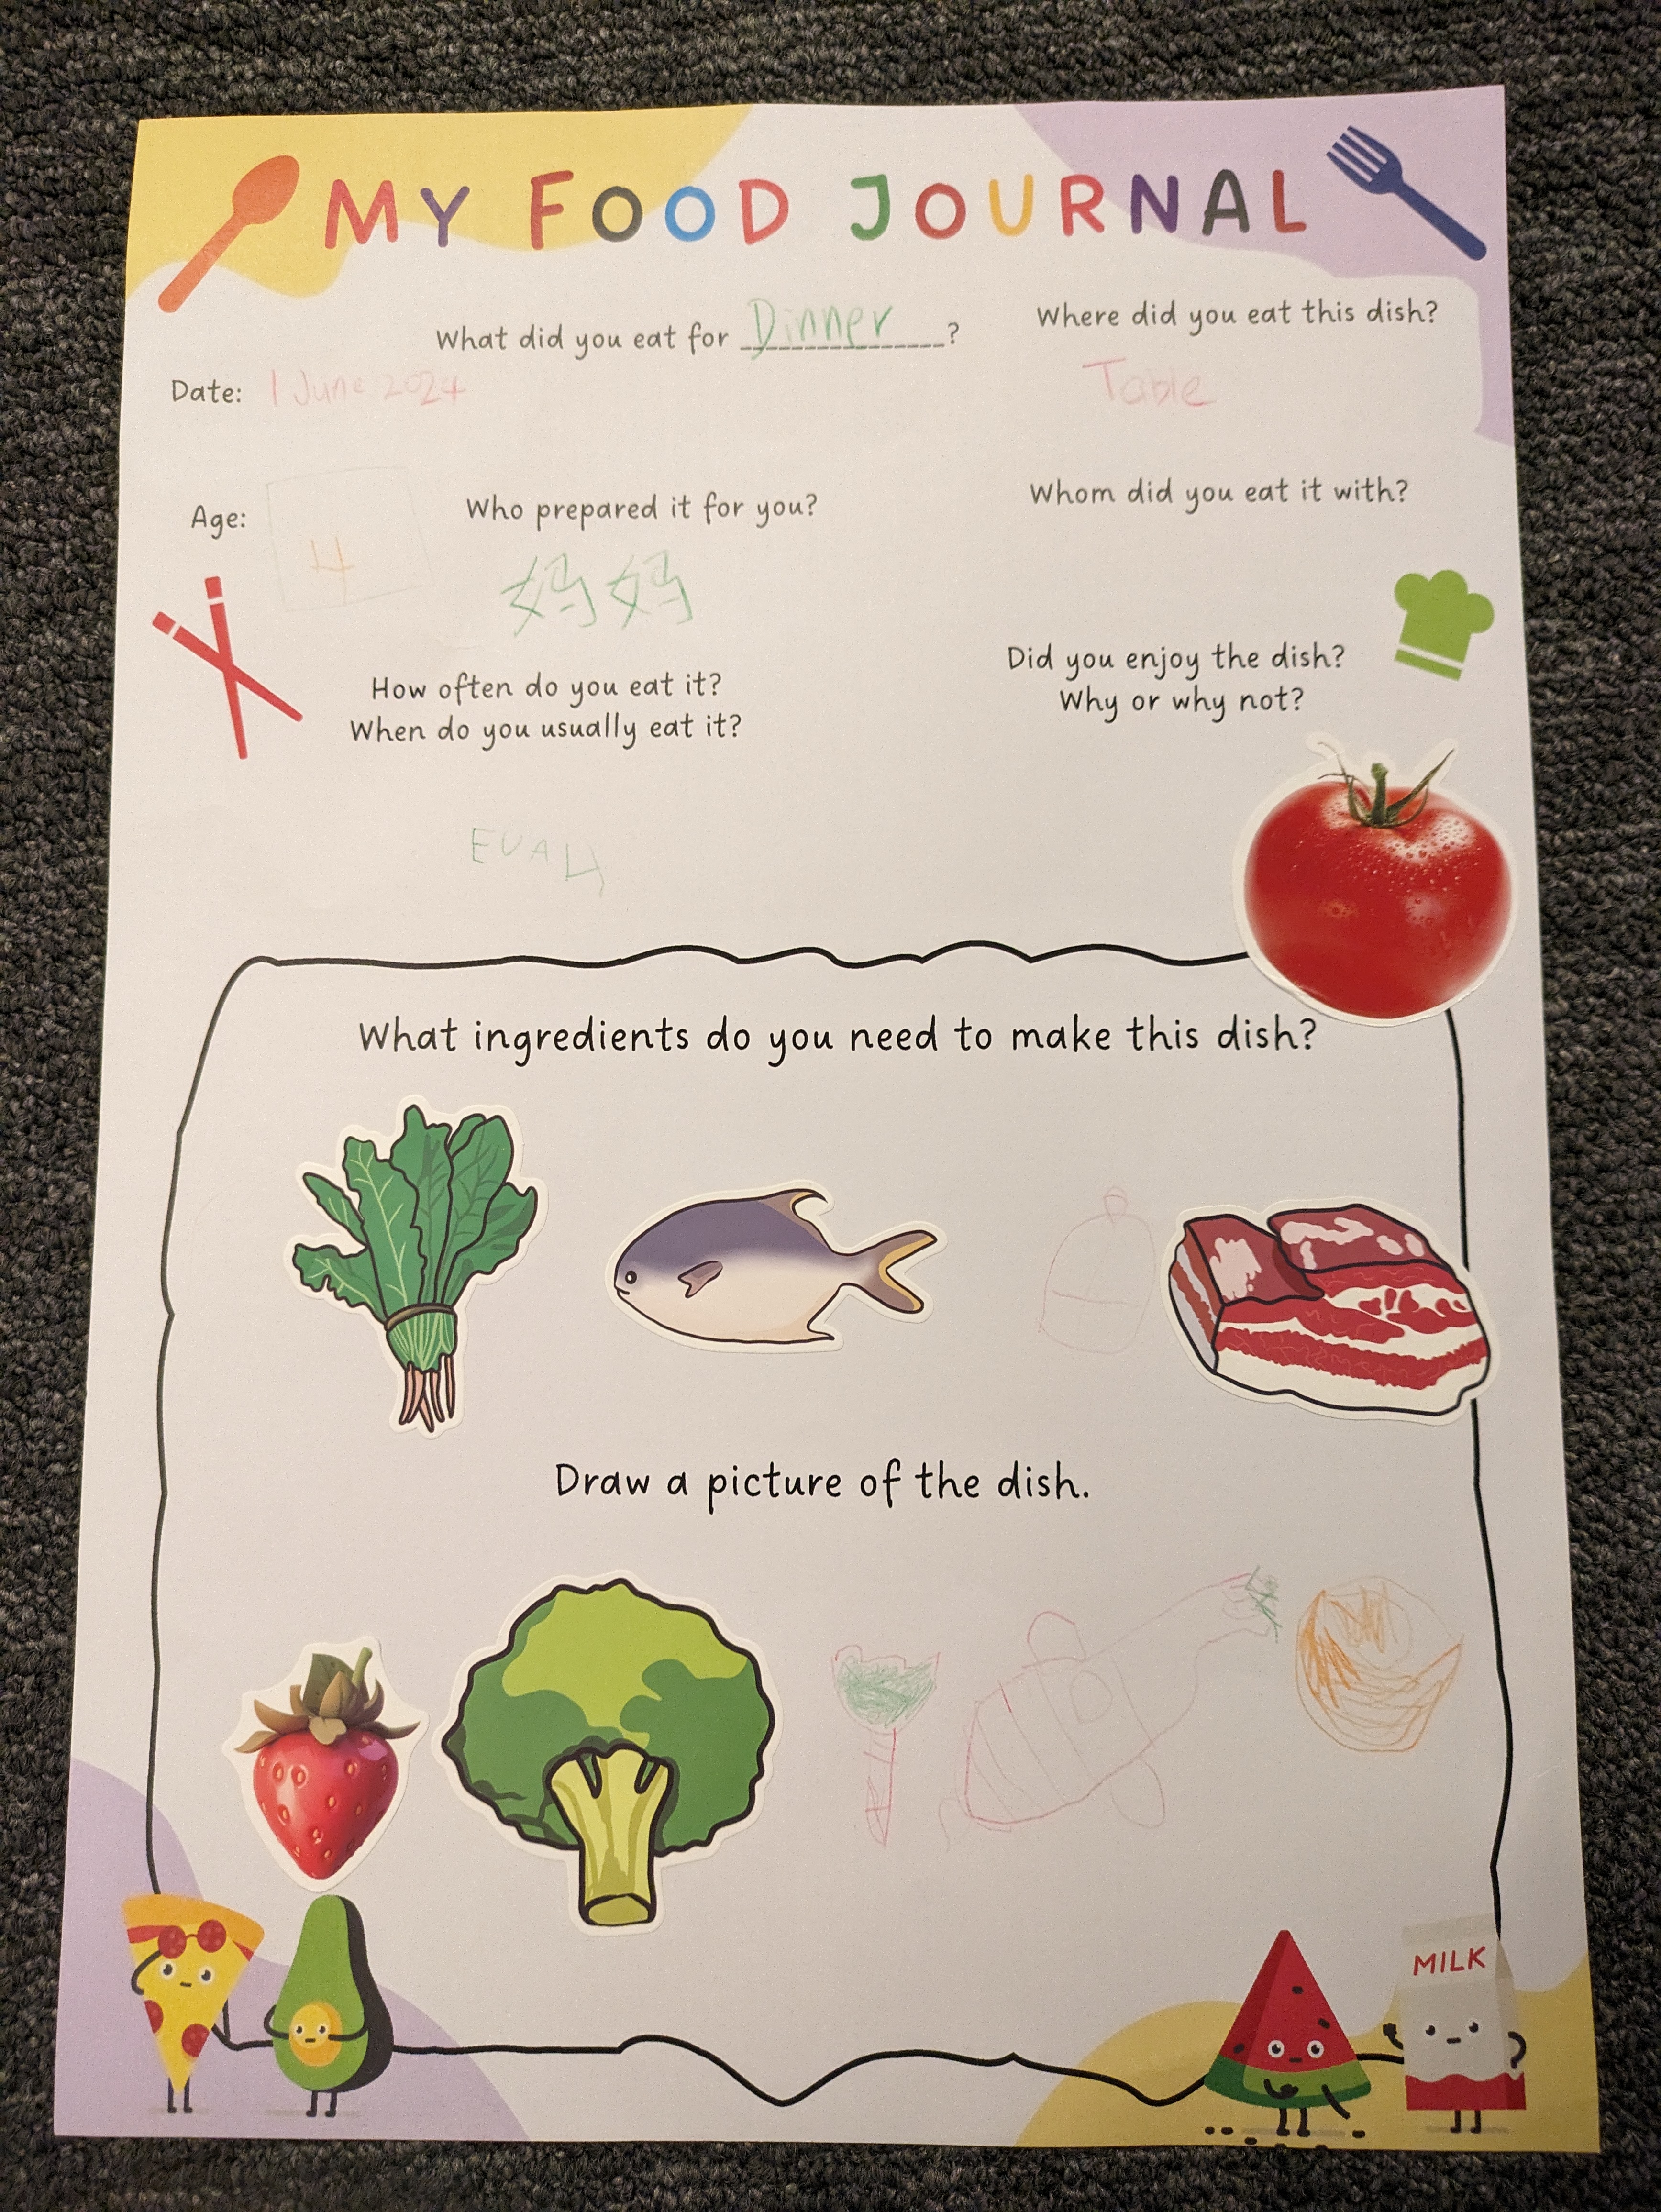 MY FOOD JOURNAL
What did you eat for Dinner?
Date: 1 June 2024
Where did you eat this dish?
Table
Age: 4
Who prepared it for you?
妈妈
Whom did you eat it with?
How often do you eat it?
When do you usually eat it?
EVA
Did you enjoy the dish?
Why or why not?
What ingredients do you need to make this dish?
Draw a picture of the dish.
MILK